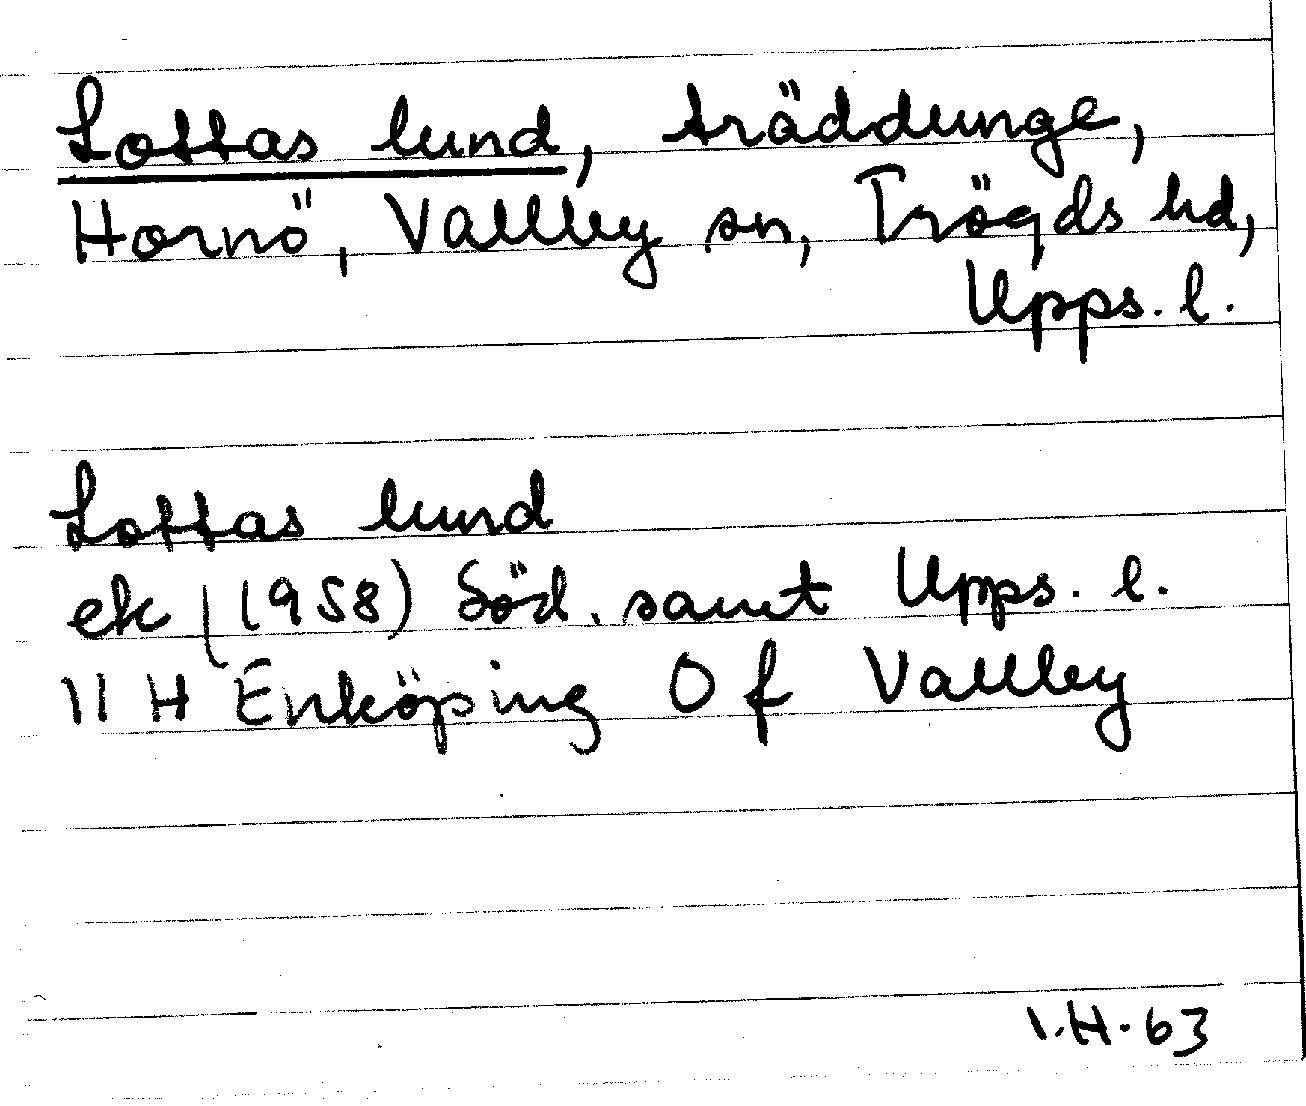 Lottas lund, träddunge,
Hornö, Vallby sn, Trögds hd,
Upps. l.
Lottas lund
ek (1958) Söd. samt Upps. l.
11 H Enköping 0 f Vallby
I.H. 63